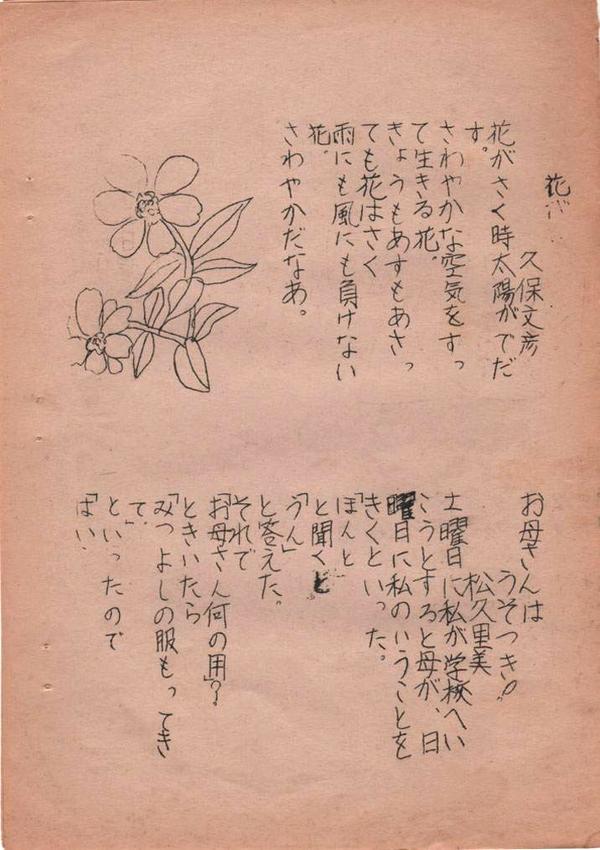 花
久保文彦
花がさく時太陽がでだ
す。
さわやかな空気をすっ
て生きる花。
きょうもあすもあさっ
ても花はさく
雨にも風にも負けない
花。
さわやかだなあ。
お母さんは
うそつき!
松久里美
土曜日に私が学校へい
こうとすると母が、日
曜日に私のいうことを
きくといった。
「ほんと
と聞くと
「うん」
と答えた。
それで
「お母さん何の用」?
ときいたら
「みつよしの服もってき
て」
といったので
「はい